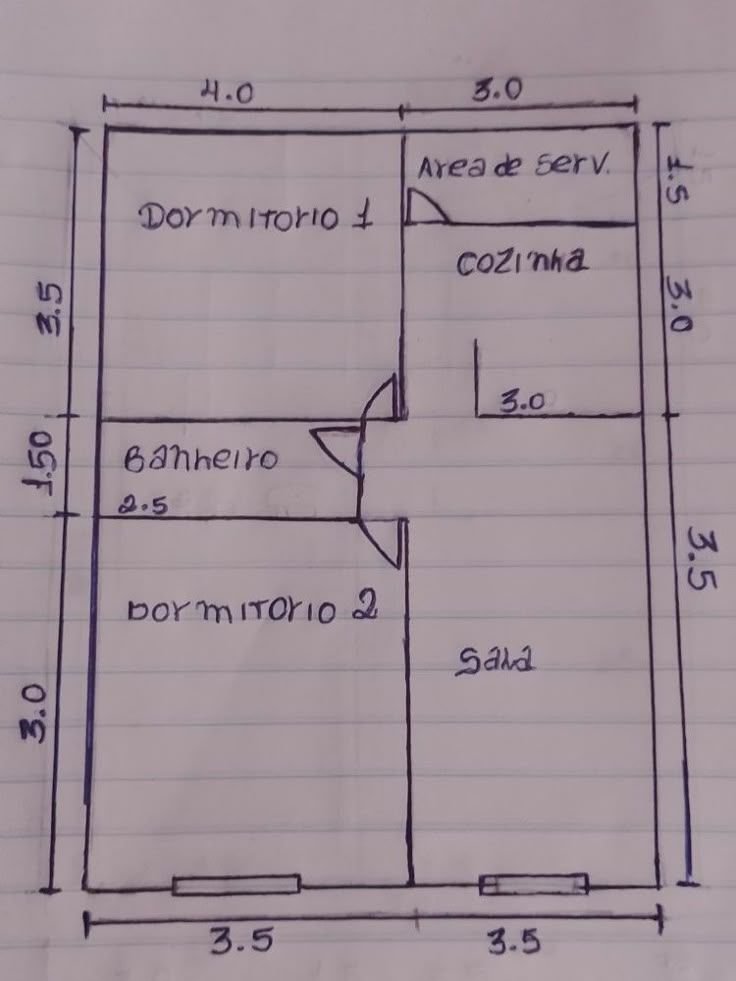 4.0
3.0
Area de Serv.
1.5
Dormitorio 1
Cozinha
3.5
3.0
3.0
Banheiro
1.50
2.5
3.5
Dormitorio 2
Sala
3.0
3.5
3.5